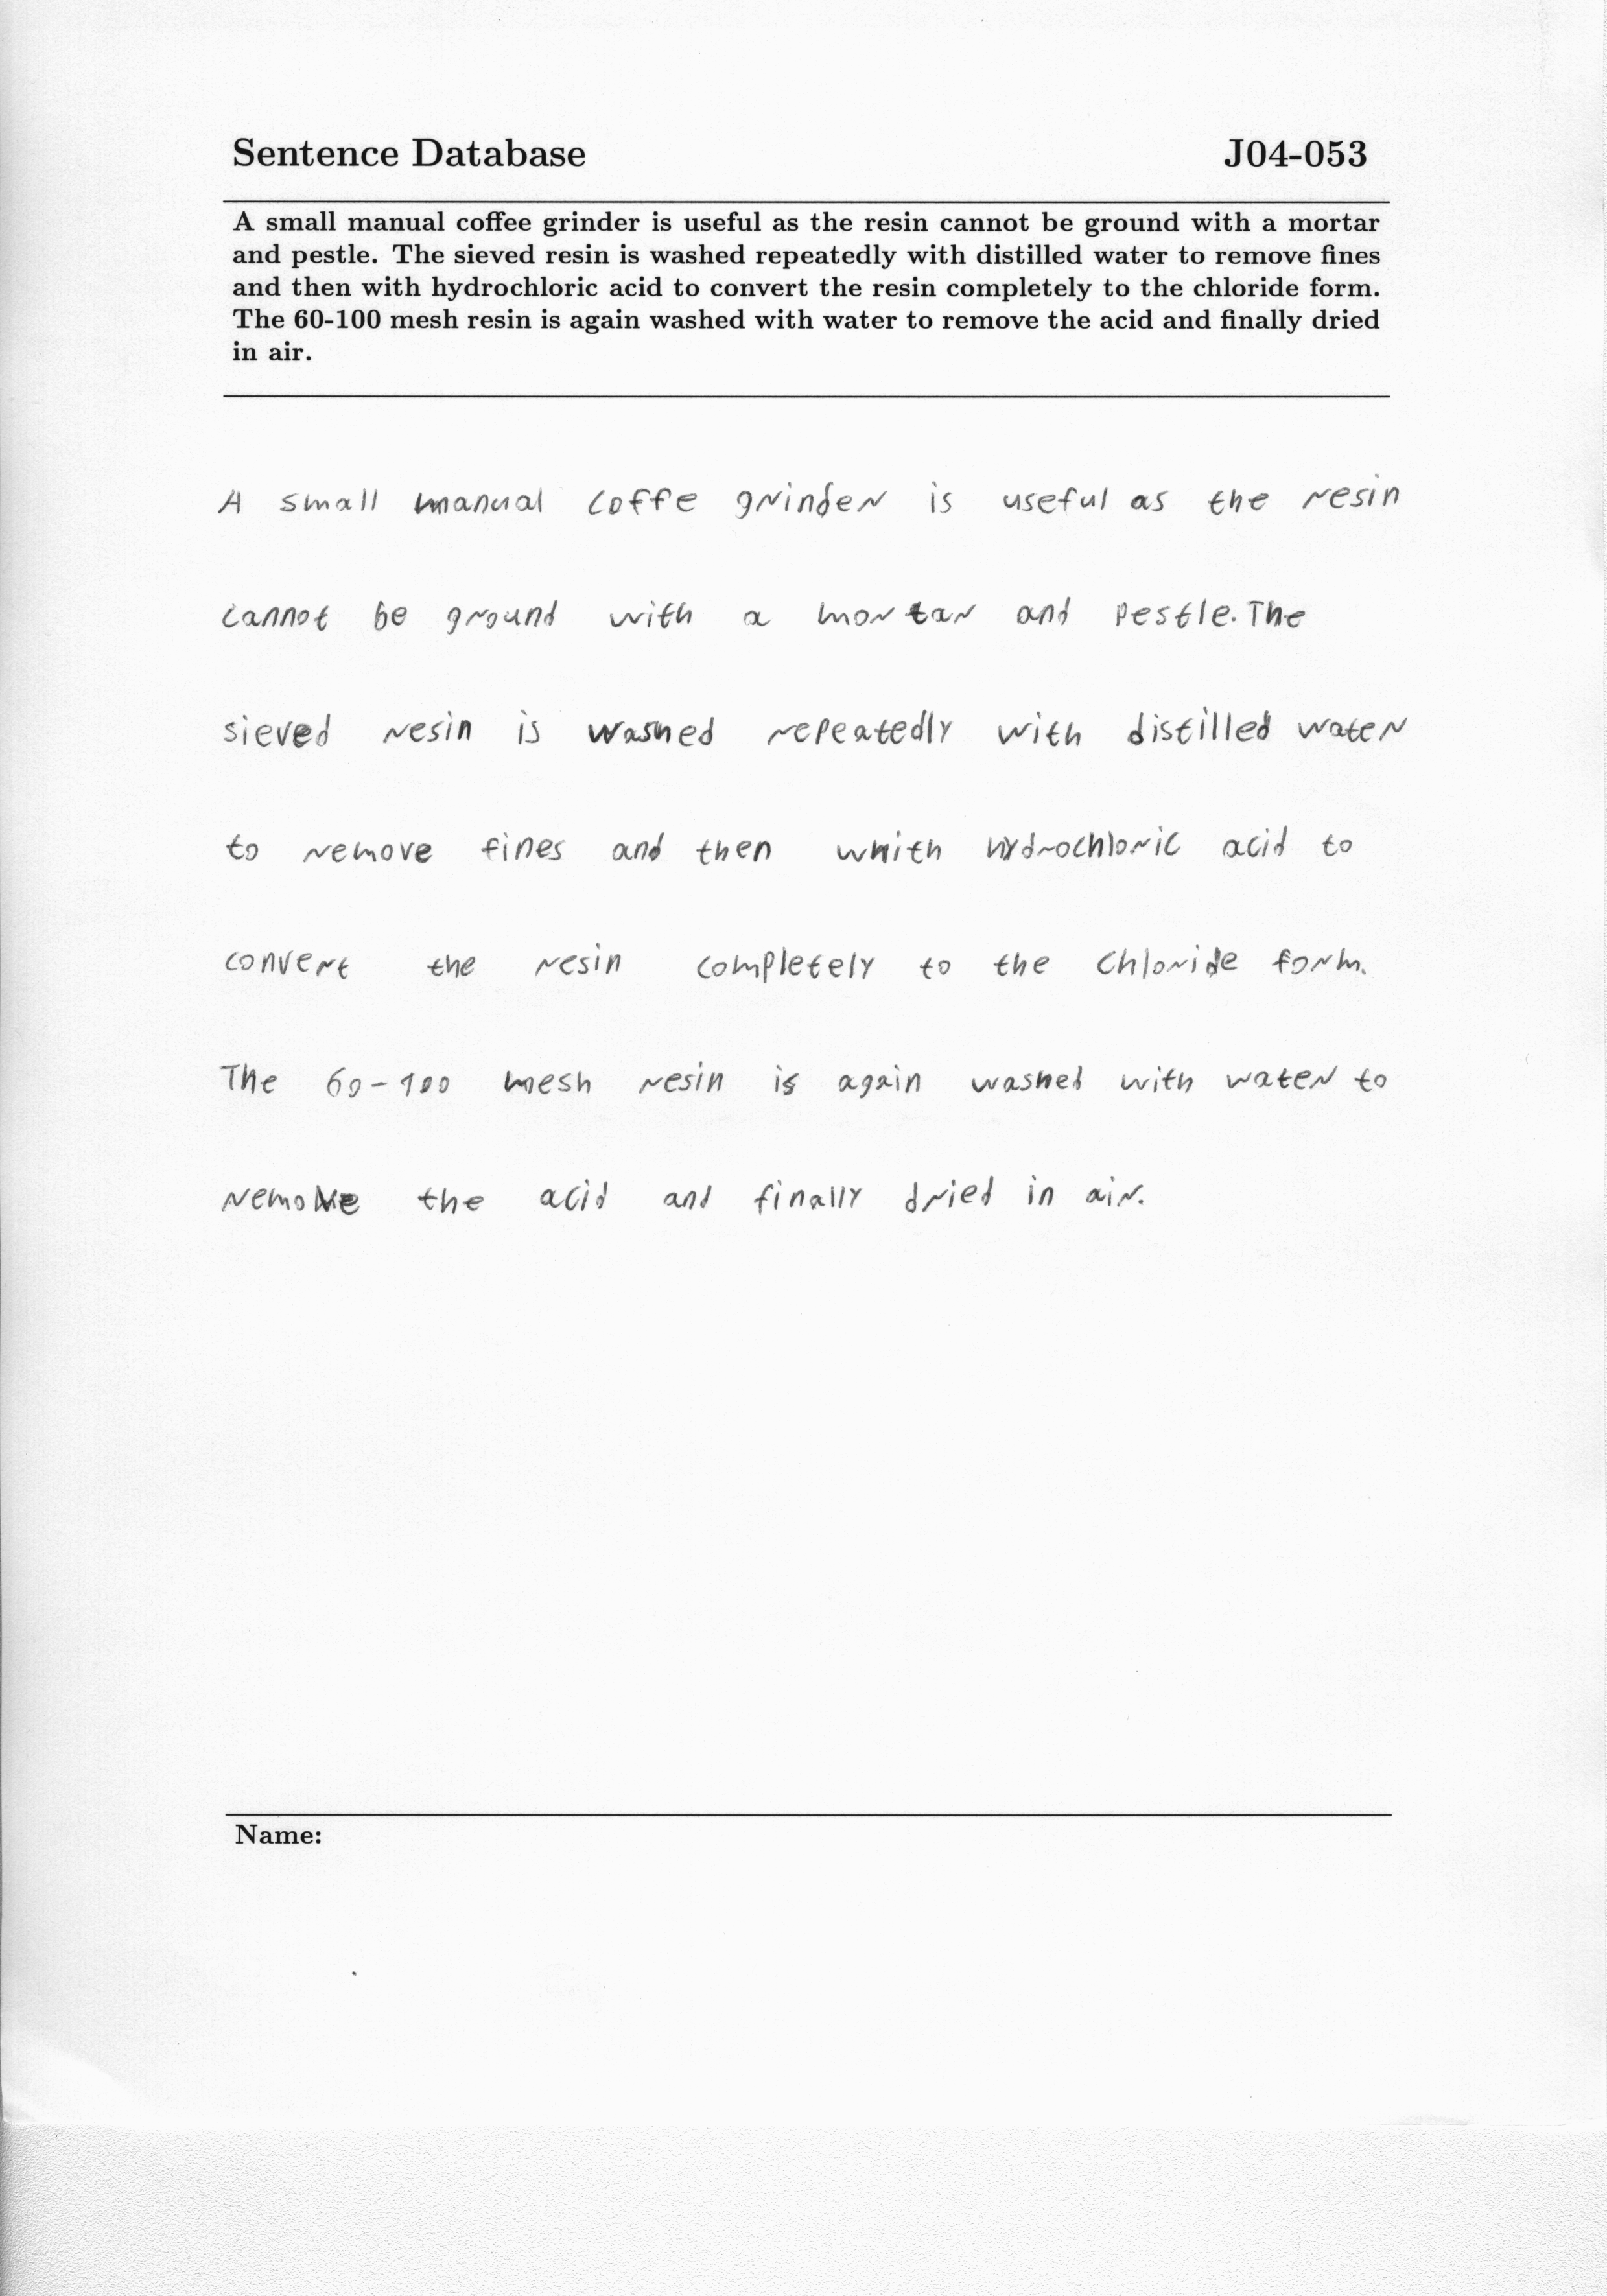 Sentence Database J04-053
A small manual coffee grinder is useful as the resin cannot be ground with a mortar
and pestle. The sieved resin is washed repeatedly with distilled water to remove fines
and then with hydrochloric acid to convert the resin completely to the chloride form.
The 60-100 mesh resin is again washed with water to remove the acid and finally dried
in air.
A small manual coffe grinder is useful as the resin
cannot be ground with a mortar and pestle. The
sieved resin is washed repeatedly with distilled water
to remove fines and then whith hydrochloric acid to
convert the resin completely to the chloride form.
The 60-100 mesh resin is again washed with water to
remove the acid and finally dried in air.
Name: